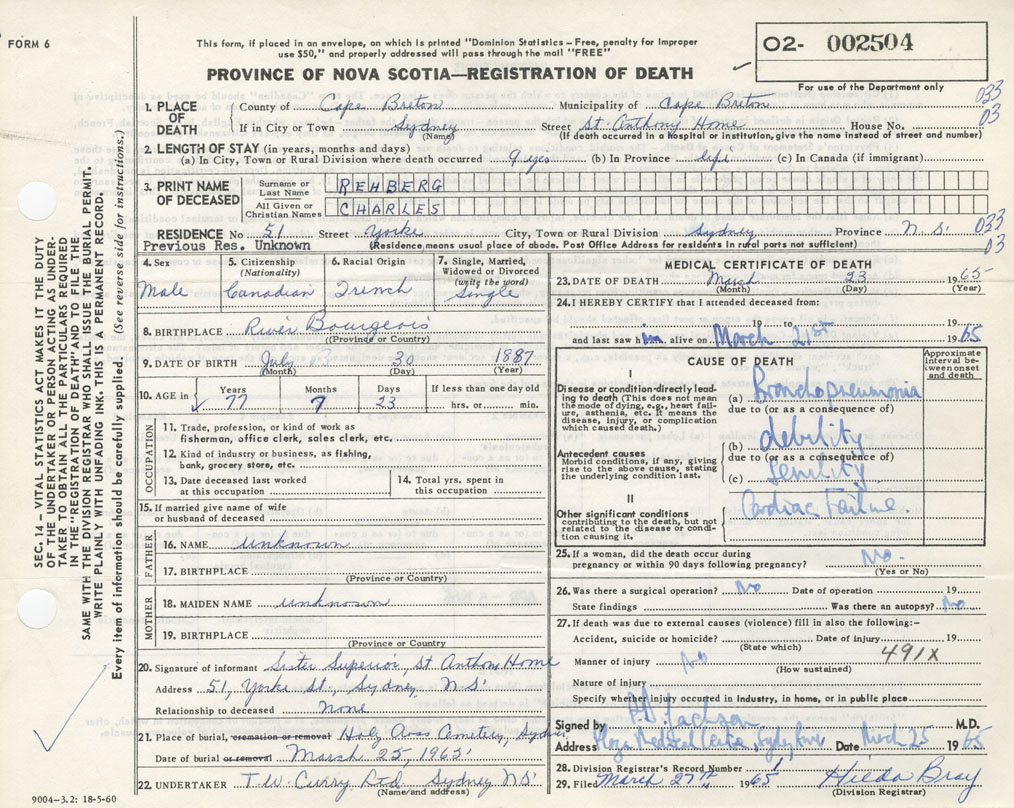 FORM 6
This form, if placed in an envelope, on which is printed "Dominion Statistics – Free, penalty for improper
use $50," and properly addressed will pass through the mail "FREE"
PROVINCE OF NOVA SCOTIA—REGISTRATION OF DEATH
02- 002504
For use of the Department only
033
03
1. PLACE OF DEATH
County of Cape Breton Municipality of Cape Breton
If in City or Town Sydney Street St Anthony Home House No.
(Name) (If death occurred in a hospital or institution, give the name instead of street and number)
2. LENGTH OF STAY (in years, months and days)
(a) In City, Town or Rural Division where death occurred 9 yrs (b) In Province Life (c) In Canada (if immigrant)
3. PRINT NAME OF DECEASED
Surname or Last Name REHBERG
All Given or Christian Names CHARLES
RESIDENCE No 51 Street Yorke City, Town or Rural Division Sydney Province N.S.
033
03
Previous Res. Unknown (Residence means usual place of abode. Post Office Address for residents in rural parts not sufficient)
4. Sex
Male
5. Citizenship
(Nationality)
Canadian
6. Racial Origin
French
7. Single, Married,
Widowed or Divorced
(write the word)
Single
8. BIRTHPLACE River Bourgeois
(Province or Country)
9. DATE OF BIRTH July 30 1887
(Month) (Day) (Year)
10. AGE in Years Months Days If less than one day old
77 7 23 hrs. or min.
OCCUPATION
11. Trade, profession, or kind of work as
fisherman, office clerk, sales clerk, etc.
12. Kind of industry or business, as fishing,
bank, grocery store, etc.
13. Date deceased last worked
at this occupation
14. Total yrs. spent in
this occupation
15. If married give name of wife
or husband of deceased
FATHER
16. NAME unknown
17. BIRTHPLACE
(Province or Country)
MOTHER
18. MAIDEN NAME unknown
19. BIRTHPLACE
(Province or Country)
20. Signature of informant Sister Superior, St Anthony Home
Address 51, Yorke St., Sydney, N.S.
Relationship to deceased None
21. Place of burial, cremation or removal Holy Cross Cemetery, Sydney
Date of burial or removal March 25, 1965
22. UNDERTAKER T.W. Curry Ltd Sydney N.S.
(Name and address)
MEDICAL CERTIFICATE OF DEATH
23. DATE OF DEATH March 23 1965
(Month) (Day) (Year)
24. I HEREBY CERTIFY that I attended deceased from:
19 to 19
and last saw him alive on March 21st 1965
CAUSE OF DEATH
Approximate
interval be-
tween onset
and death
I
Disease or condition directly lead-
ing to death (This does not mean
the mode of dying, e.g., heart failure,
asthenia, etc. It means the
disease, injury, or complication
which caused death.)
(a) Bronchopneumonia
due to (or as a consequence of)
Antecedent causes
Morbid conditions, if any, giving
rise to the above cause, stating
the underlying condition last.
(b) debility
due to (or as a consequence of)
(c) Senility
II
Other significant conditions
contributing to the death, but not
related to the disease or condi-
tion causing it.
Cardiac Failure.
25. If a woman, did the death occur during
pregnancy or within 90 days following pregnancy? No.
(Yes or No)
26. Was there a surgical operation? No Date of operation 19
State findings Was there an autopsy? No
27. If death was due to external causes (violence) fill in also the following:-
Accident, suicide or homicide? Date of injury 19
(State which)
491X
Manner of injury
(How sustained)
Nature of injury
Specify whether injury occured in industry, in home, or in public place
Signed by Jackson M.D.
Address Medical Centre Date March 25 1965
28. Division Registrar's Record Number 1
29. Filed March 27th 1965 Hilda Bray
(Division Registrar)
SEC. 14 – VITAL STATISTICS ACT MAKES IT THE DUTY
OF THE UNDERTAKER OR PERSON ACTING AS UNDER-
TAKER TO OBTAIN ALL THE PARTICULARS REQUIRED
IN THE "REGISTRATION OF DEATH" AND TO FILE THE
SAME WITH THE DIVISION REGISTRAR WHO SHALL ISSUE THE BURIAL PERMIT.
WRITE PLAINLY WITH UNFADING INK. THIS IS A PERMANENT RECORD.
Every item of information should be carefully supplied. (See reverse side for instructions.)
9004-3.2: 18-5-60